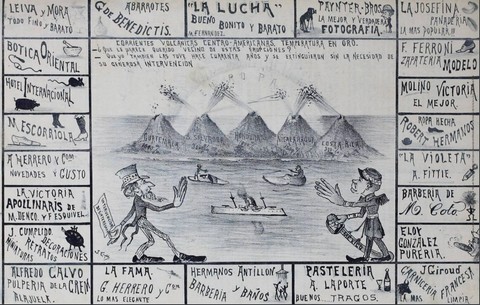 LEIVA y MORA
TODO FINO y BARATO
ABARROTES
G. DE BENEDICTIS.
"LA LUCHA"
BUENO BONITO y BARATO
U. FERNANDEZ.
PAYNTER-BROS.
LA MEJOR y VERDADERA
FOTOGRAFIA.
LA JOSEFINA
PANADERIA
LA MAS POPULAR!!
CORRIENTES VOLCANICAS CENTRO-AMERICANAS. TEMPERATURA EN ORO.
QUE LE PARECE QUERIDO VECINO DE ESTAS ERUPCIONES?
QUE YO TAMBIEN LAS TUVE HACE CUARENTA AÑOS y SE EXTINGUIERON SIN LA NECESIDAD DE
SU GENEROSA INTERVENCION
BOTICA
ORIENTAL
F. FERRONI
ZAPATERIA
MODELO
HOTEL
INTERNACIONAL
MOLINO VICTORIA
EL MEJOR.
M. ESCORRIOLA
ROPA HECHA
ROBERT HERMANOS
GUATEMALA
SALVADOR
HONDURAS
NICARAGUA
COSTA RICA
A HERRERO y COM.
NOVEDADES y GUSTO
"LA VIOLETA"
A. FITTIE.
LA VICTORIA
APOLLINARIS DE
M. DENGO, y F ESQUIVEL.
BARBERIA DE
J. CUMPLIDO.
DECORACIONES
RETRATOS
MINIATURAS
ELOY
GONZÁLEZ
PURERIA.
ALFREDO CALVO
PULPERIA DE LA GREDA
ALAJUELA.
LA FAMA
G. HERRERO y Cia
LO MAS ELEGANTE
HERMANOS ANTILLON
BARBERIA y BAÑOS
PASTELERIA
A. LAPORTE
BUENOS TRAGOS.
J GIROUD
CARNICERIA FRANCESA
LIMPIA